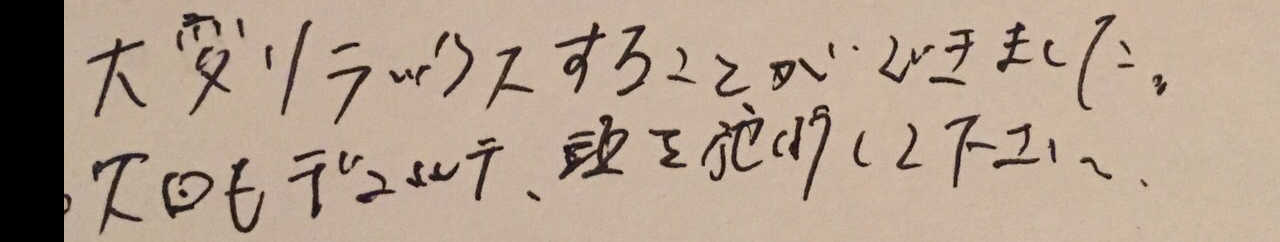 大変リラックスすることができました。
次回もデコルテ、頭を施術して下さい。